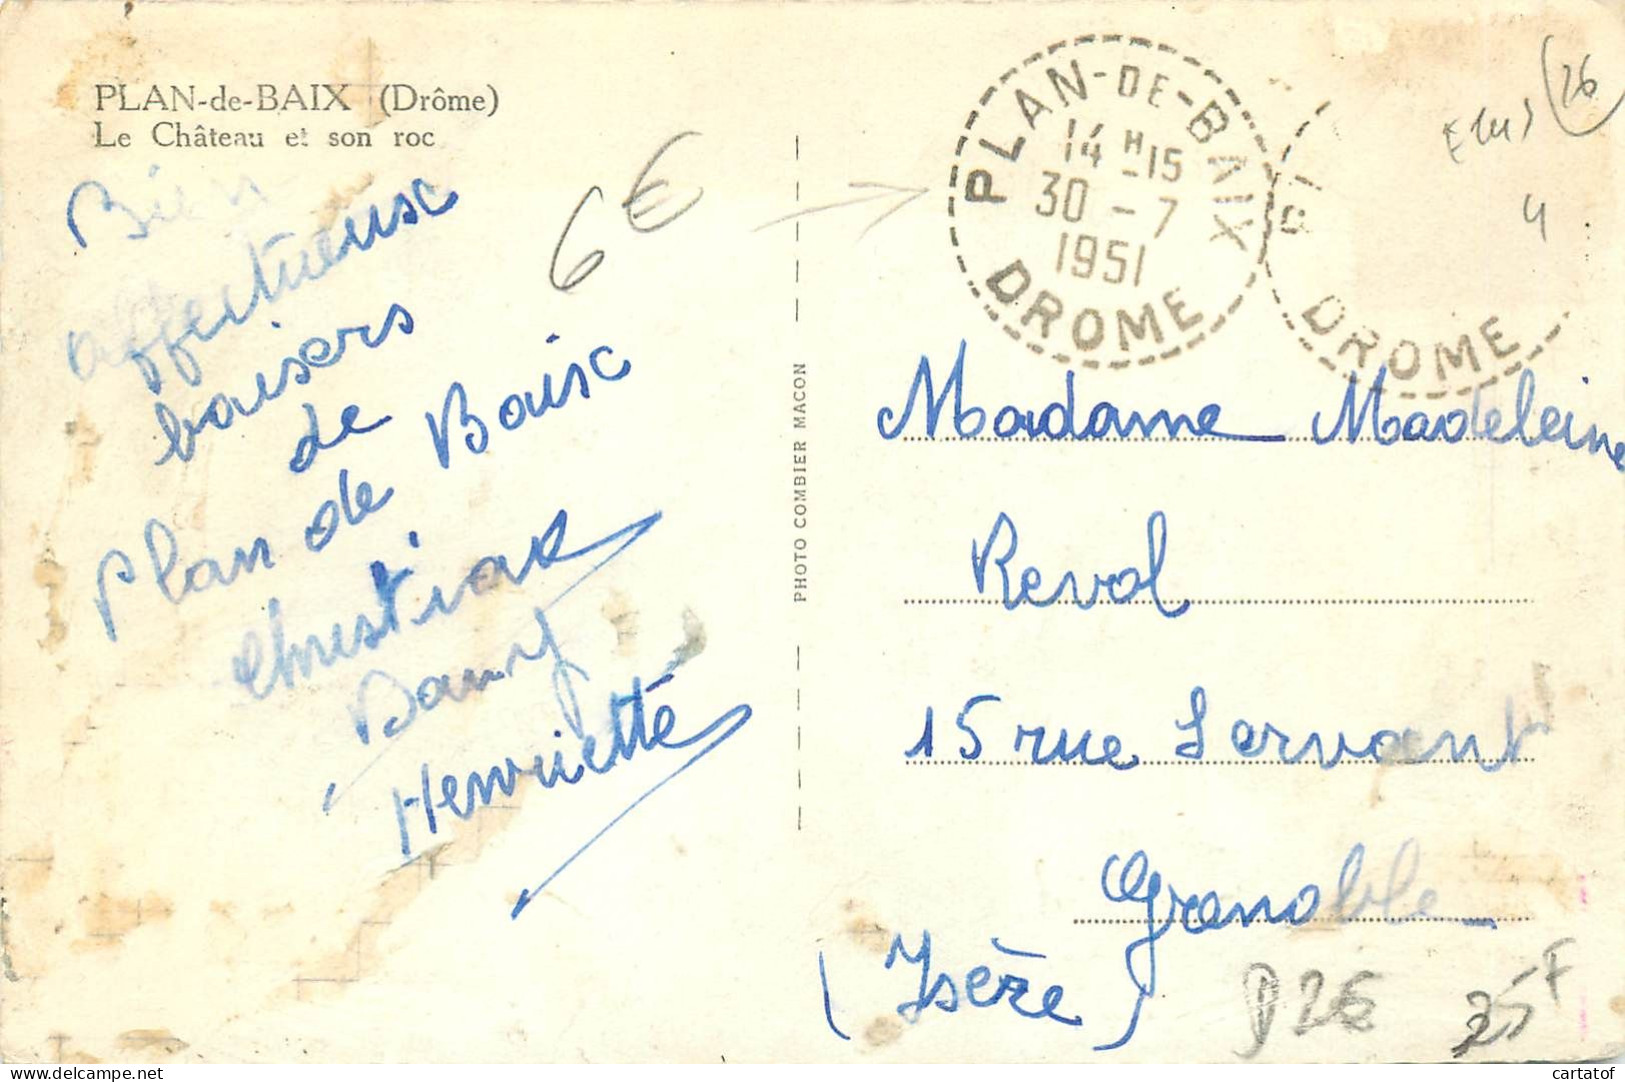 PLAN-de-BAIX (Drôme)
Le Château et son roc
Bien
affectueux
baisers
de
Plan de Baix
Christian
Henriette
6€
PHOTO COMBIER MACON
PLAN-DE-BAIX
14 H 15
30 - 7
1951
DROME
DROME
26
4
Madame Madeleine
Revol
15 rue Servant
Grenoble
(Isère)
P26
25F
cartatof